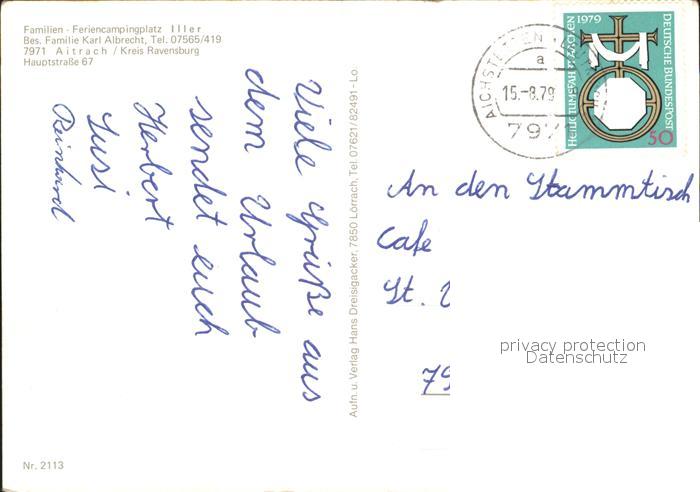 Familien - Feriencampingplatz Iller
Bes. Familie Karl Albrecht, Tel. 07565/419
7971 Aitrach / Kreis Ravensburg
Hauptstraße 67
Viele Grüße aus
dem Urlaub
sendet euch
Herbert
Susi
Reinhard
Nr. 2113
Aufn. u. Verlag Hans Dreisigacker, 7850 Lörrach, Tel. 07621/82491 - Lo
15.-8.79
a
797
1979
HEILIGTUMSFAHRT AACHEN
DEUTSCHE BUNDESPOST
50
An den Stammtisch
Cafe
St.
79
privacy protection
Datenschutz